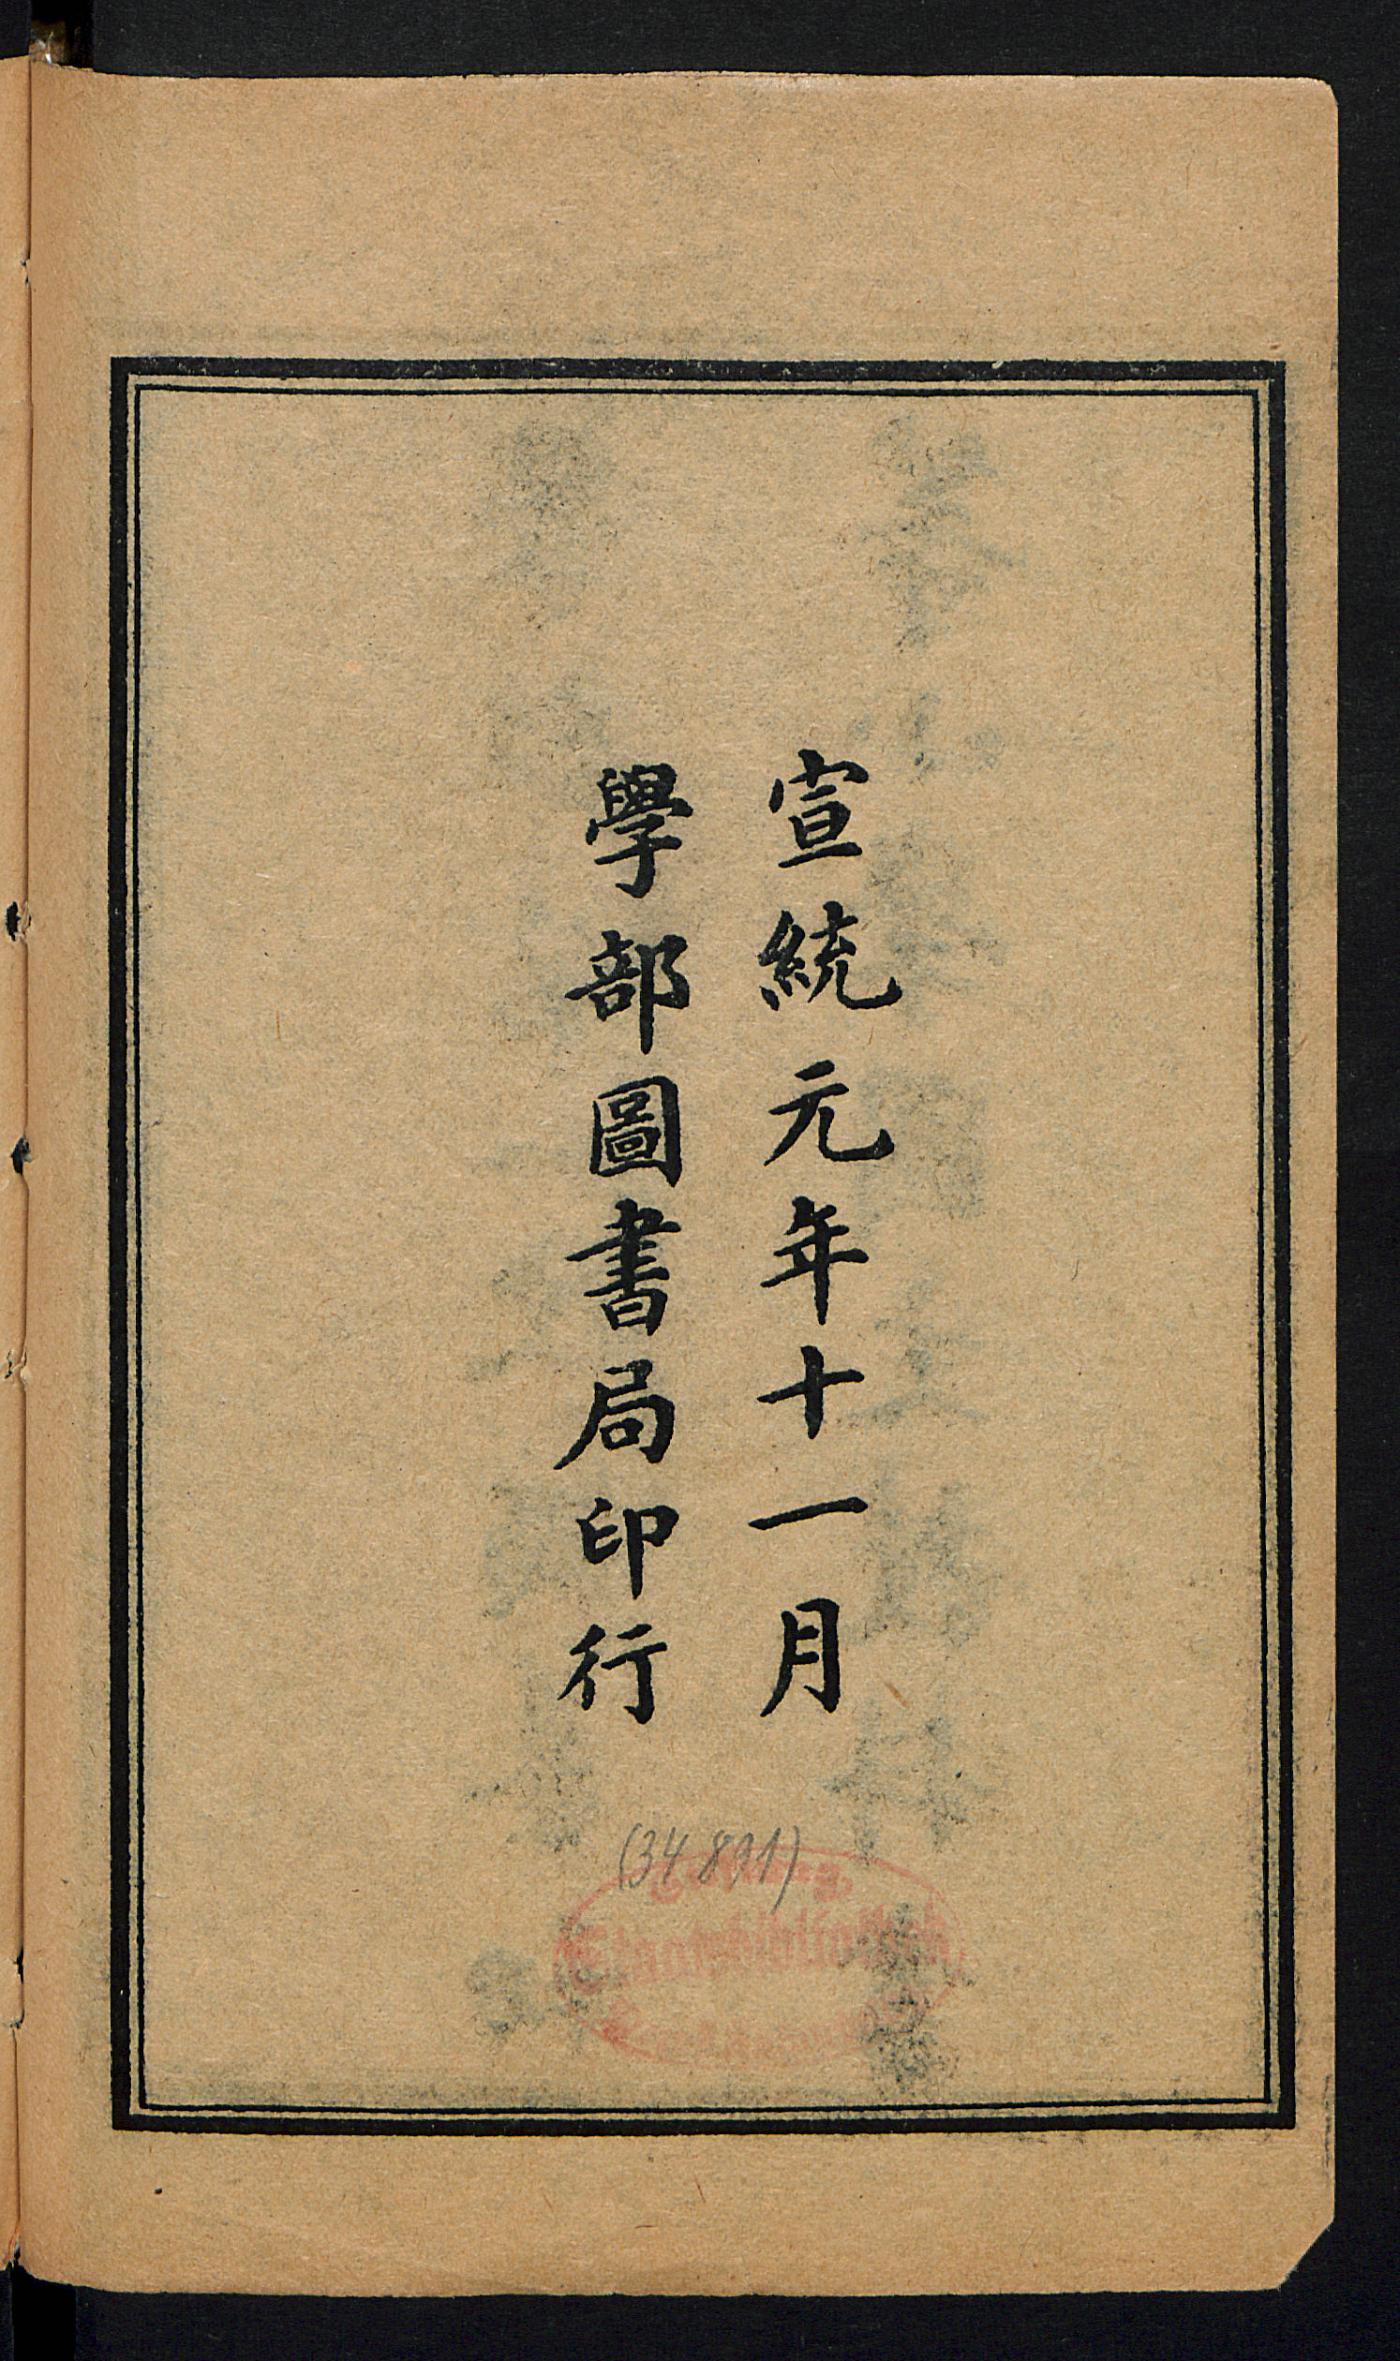 宣統元年十一月
學部圖書局印行
(34891)
Staatsbibliothek